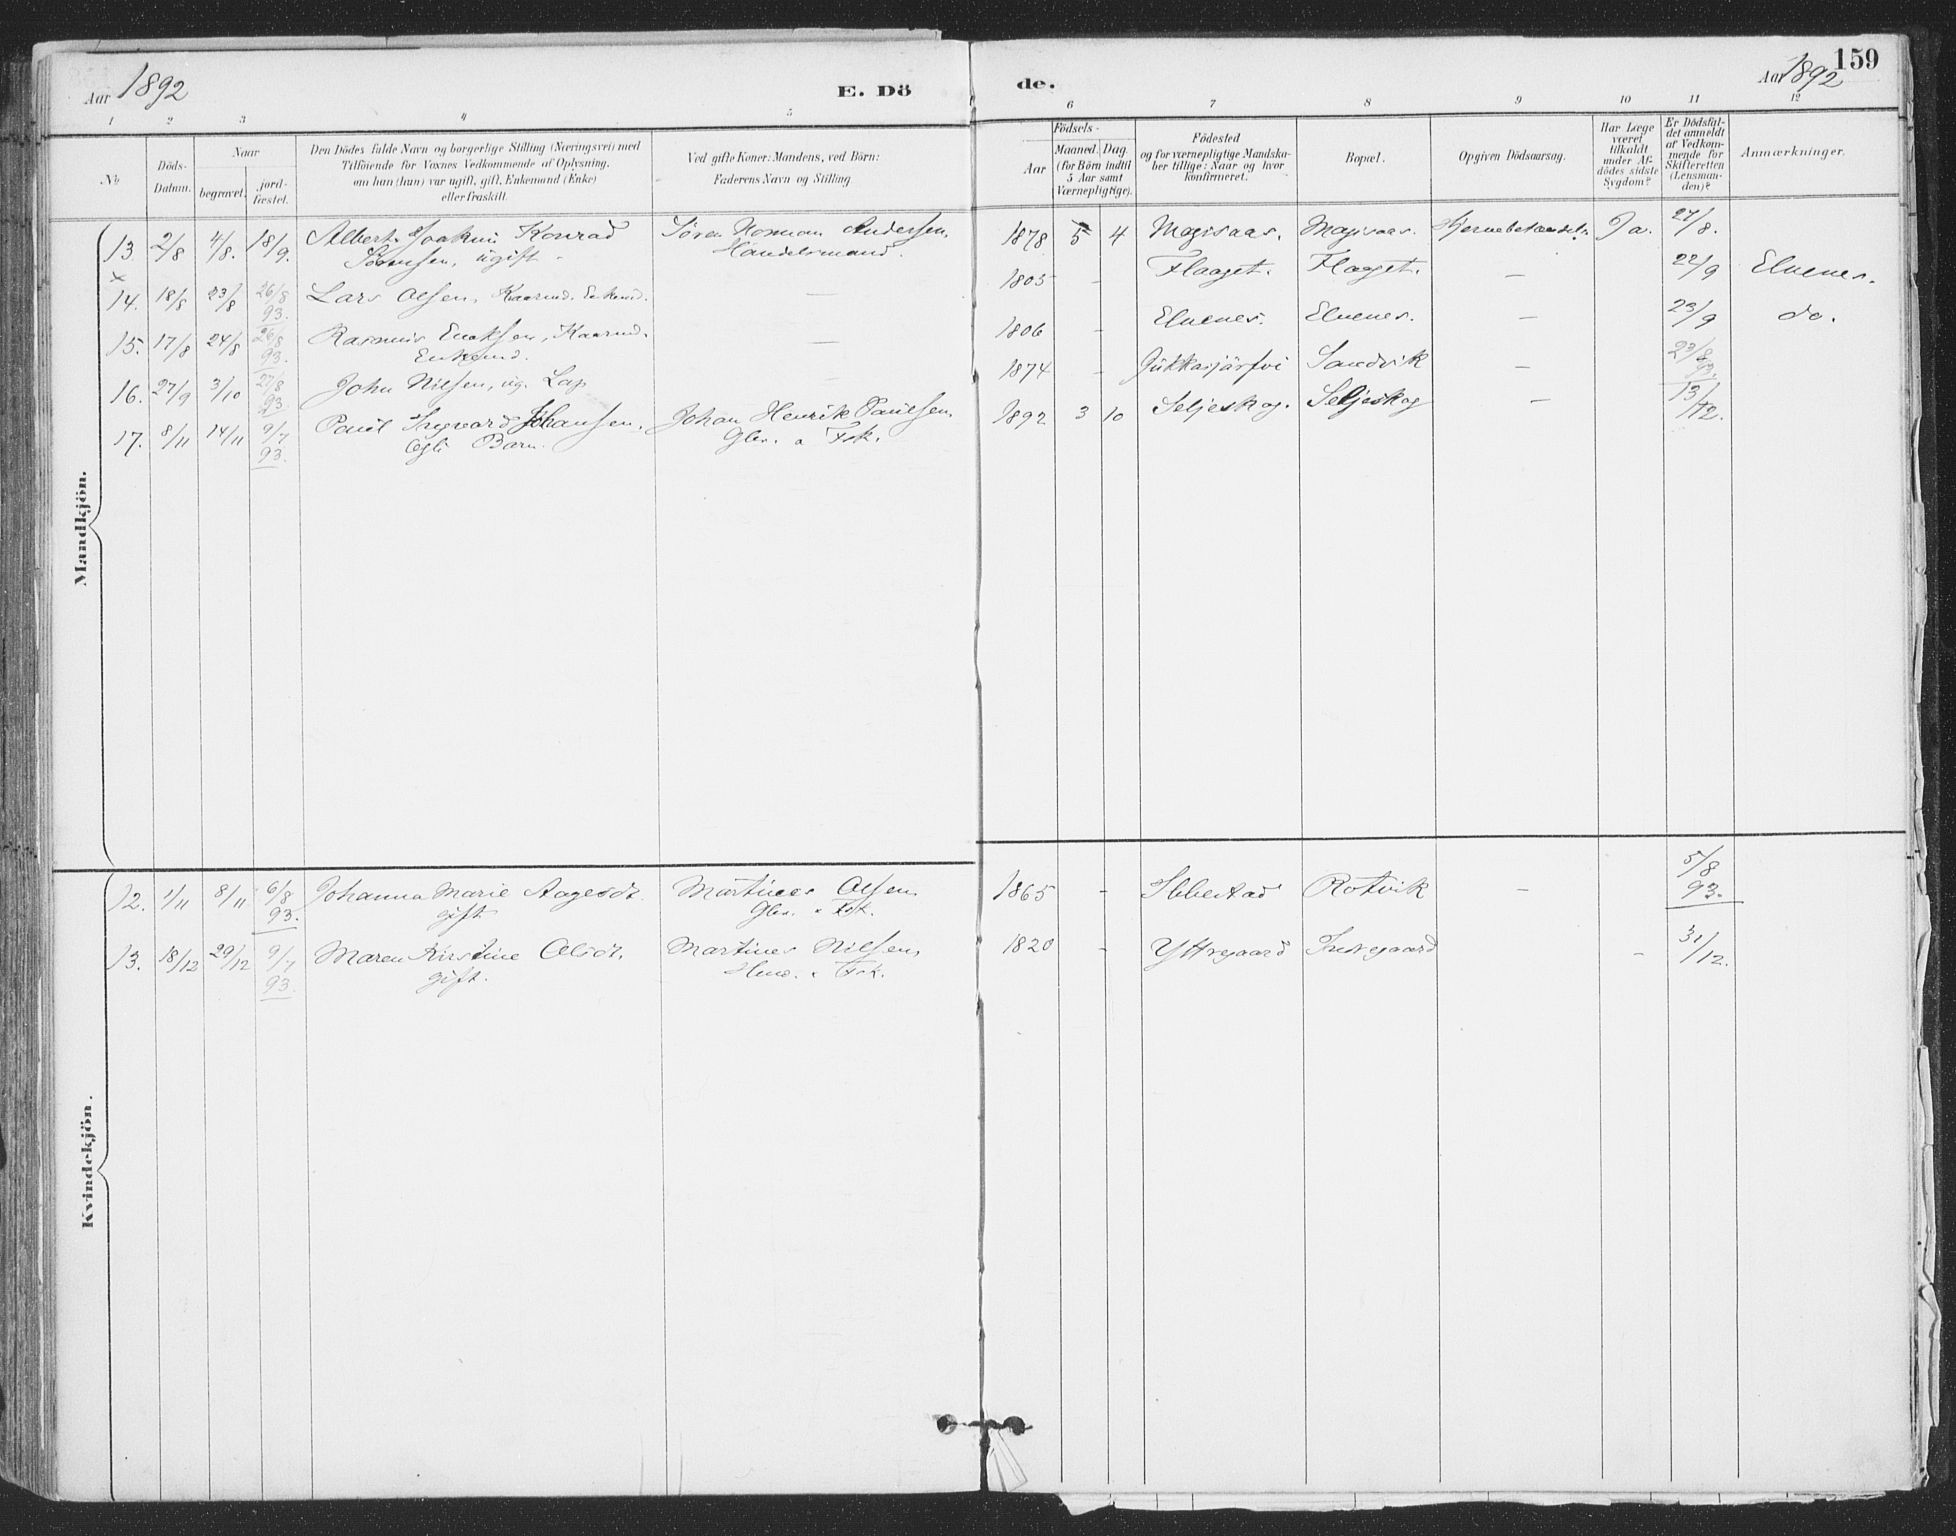 159
Aar 1892 E. Dö
de. Aar 1892
1 2 3 4 5
6 7 8 9 10 11 12
No
Döds-
Datum.
Naar
begravet.
jord-
fæstet.
Den Dödes fulde Navn og borgerlige Stilling (Næringsvei) med
Tilföiende for Voxnes Vedkommende af Oplysning,
om han (hun) var ugift, gift, Enkemand (Enke)
eller fraskilt.
Ved gifte Koner: Mandens, ved Börn:
Faderens Navn og Stilling
Födsels-
Aar
Maaned. Dag.
(for Börn indtil
5 Aar samt
Værnepligtige).
Födested
og for værnepligtige Mandska-
ber tillige: Naar og hvor
konfirmeret.
Bopæl.
Opgiven Dödsaarsag.
Har Læge
været
tilkaldt
under Af-
dödes sidste
Sygdom?
Er Dödsfal-
det anmeldt
af Vedkom-
mende for
Skifteretten
(Lensman-
den)?
Anmærkninger.
Mandkjön.
13 2/8 4/8. 18/9. Albert Joakim Konrad Sören Norman Andersen, 1878 5 4 Mogisaas. Mogisaas. Ja. 27/8.
ugift Handelsmand.
x
14. 18/8 23/8 26/8 Lars Olsen, Kaarmd. Enkemd. — 1805 - Flaaget. Flaaget. — 22/9 Elvenes.
93.
15. 17/8 24/8 26/8 Rasmus Enoksen, Kaarmd. — 1806 - Elvenes. Elvenes. — 23/9 do.
93. Enkemd.
16. 27/9 3/10 27/8 John Nilsen, ug. Lap — 1874 - Jukkasjärfvi Sandvik — 23/8
93. 93.
17. 8/11 14/11 9/7 Paul Ingvard Johansen, Johan Henrik Paulsen, 1892 3 10 Seljeskog. Seljeskog — 13/12.
93. Ægte Barn. Gbr. o Fsk.
Kvindekjön.
12. 1/11 8/11 6/8 Johanna Marie Aagesdt. Martines Olsen 1865 - Ibbestad Rotvik — 5/8
93. gift Gbr. o Fsk. 93.
13. 18/12 29/12 9/7 Maren Kirstine Olsdt. Martines Nilsen 1820 - Yttregaard Indregaard - 31/12.
93. gift. Hmd. o Fsk.